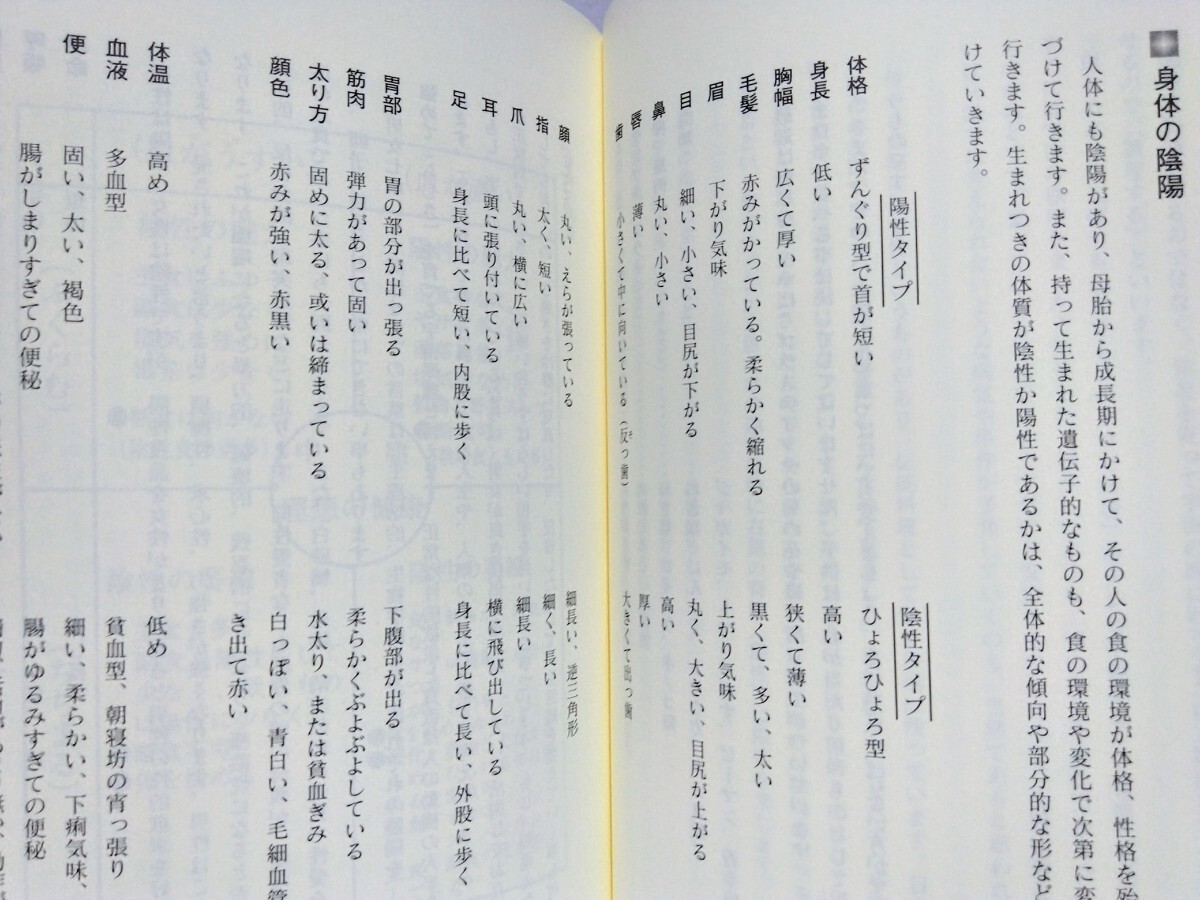 身体の陰陽
人体にも陰陽があり、母胎から成長期にかけて、その人の食の環境が体格、性格を殆
づけて行きます。また、持って生まれた遺伝子的なものも、食の環境や変化で次第に変
行きます。生まれつきの体質が陰性か陽性であるかは、全体的な傾向や部分的な形など
けていきます。
陽性タイプ 陰性タイプ
体格 ずんぐり型で首が短い ひょろひょろ型
身長 低い 高い
胸幅 広くて厚い 狭くて薄い
毛髪 赤みがかっている。柔らかく縮れる 黒くて、多い、太い
眉 下がり気味 上がり気味
目 細い、小さい、目尻が下がる 丸く、大きい、目尻が上がる
鼻 丸い、小さい 高い
唇 薄い 厚い
歯 小さくて中に向いている（反っ歯） 大きくて出っ歯
顔 丸い、えらが張っている 細長い、逆三角形
指 太く、短い 細く、長い
爪 丸い、横に広い 細長い
耳 頭に張り付いている 横に飛び出している
足 身長に比べて短い、内股に歩く 身長に比べて長い、外股に歩く
胃部 胃の部分が出っ張る 下腹部が出る
筋肉 弾力があって固い 柔らかくぶよぶよしている
太り方 固めに太る、或いは締まっている 水太り、または貧血ぎみ
顔色 赤みが強い、赤黒い 白っぽい、青白い、毛細血管
き出て赤い
体温 高め 低め
血液 多血型 貧血型、朝寝坊の宵っ張り
便 固い、太い、褐色 細い、柔らかい、下痢気味、
腸がしまりすぎての便秘 腸がゆるみすぎての便秘